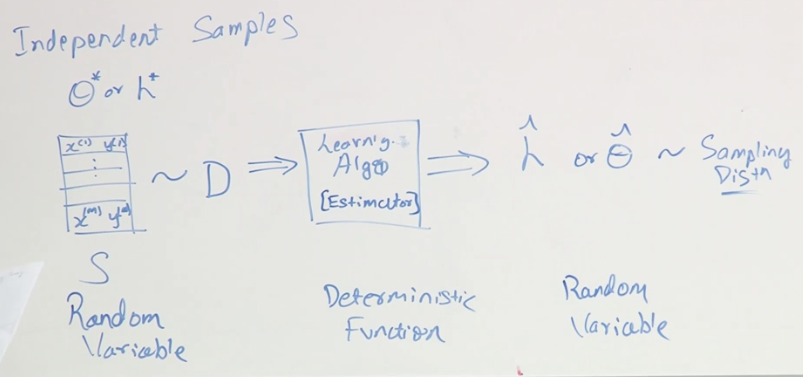 Independent Samples
θ* or h*
x⁽¹⁾ y⁽¹⁾
⋮
x⁽ᵐ⁾ y⁽ᵐ⁾
~ D ⇒
Learning
Algo
[Estimator]
⇒ ĥ or θ̂ ~ Sampling
Distn
S
Random
Variable
Deterministic
Function
Random
Variable